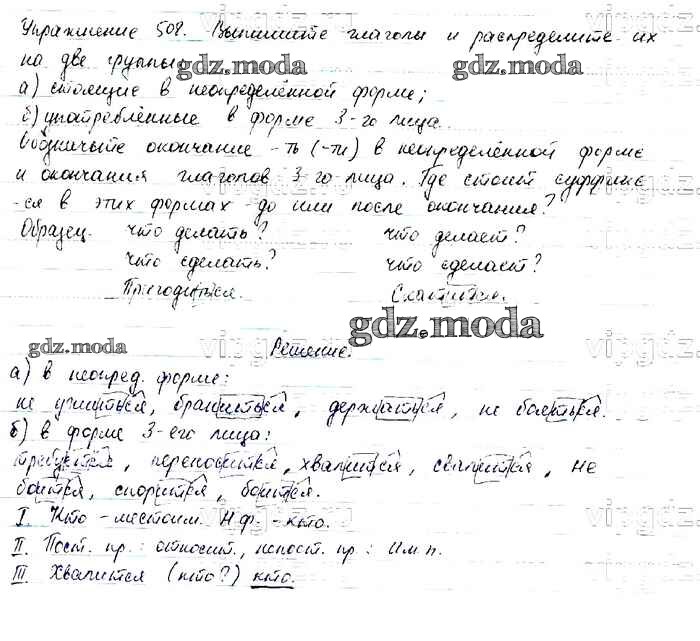 Упражнение 508. Выпишите глаголы и распределите их
на две группы:
gdz.moda
а) стоящие в неопределённой форме;
б) употреблённые в форме 3-го лица.
Обозначьте окончание -ть (-ти) в неопределённой форме
и окончания глаголов 3-го лица. Где стоит суффикс
-ся в этих формах - до или после окончания?
Образец. что делать? что делает?
что сделать? что сделает?
Пригодиться. Скатится.
gdz.moda
gdz.moda
Решение.
а) в неопред. форме:
не учиться, браниться, держаться, не бояться.
б) в форме 3-его лица:
требуется, переносится, хвалится, не
боится, спорится, боится.
I Кто - местоим. Н.ф. - кто.
II. Пост. пр.: относит., непост. пр.: И.м п.
III Хвалится (кто?) кто.